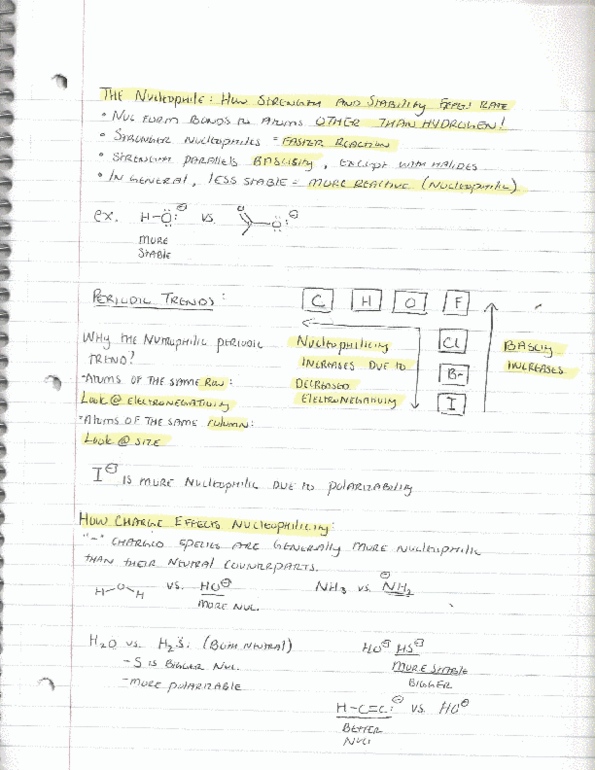 THE NUCLEOPHILE: HOW STRENGTH AND STABILITY EFFECT RATE
• NUC FORM BONDS TO ATOMS OTHER THAN HYDROGEN!
• STRONGER NUCLEOPHILES = FASTER REACTION
• STRENGTH PARALLELS BASICITY, EXCEPT WITH HALIDES
• IN GENERAL, LESS STABLE = MORE REACTIVE (NUCLEOPHILIC)
ex. H-Ö:⊖ VS. O Ö:⊖
MORE
STABLE
PERIODIC TRENDS:
C H O F
WHY THE NUCLEOPHILIC PERIODIC
TREND?
-ATOMS OF THE SAME ROW:
LOOK @ ELECTRONEGATIVITY
-ATOMS OF THE SAME COLUMN:
LOOK @ SIZE
NUCLEOPHILICITY
INCREASES DUE TO
DECREASED
ELECTRONEGATIVITY
Cl
Br
I
BASICITY
INCREASES
I⊖ IS MORE NUCLEOPHILIC DUE TO POLARIZABILITY
HOW CHARGE EFFECTS NUCLEOPHILICITY:
"-" CHARGED SPECIES ARE GENERALLY MORE NUCLEOPHILIC
THAN THEIR NEUTRAL COUNTERPARTS.
H-O-H VS. HO⊖ NH3 VS. ⊖NH2
MORE NUC.
H2O VS. H2S: (BOTH NEUTRAL)
- S IS BIGGER NUC.
- MORE POLARIZABLE
HO⊖ HS⊖
MORE STABLE
BIGGER
H-C≡C:⊖ VS. HO⊖
BETTER
NUC